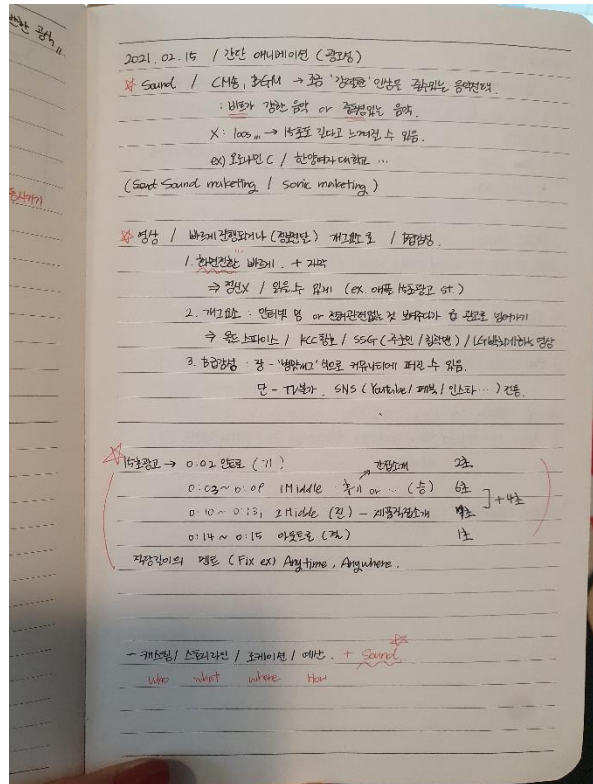 반한 공식
2021. 02. 15 / 간단 애니메이션 (광고성)
☆ Sound / CM송, BGM → 조금 '강력한' 인상을 줄수있는 음악선택.
: 비트가 강한 음악 or 중독성있는 음악.
X: 100s → 15초도 길다고 느껴질 수 있음.
ex) 오로나민 C / 한양여자대학교 ...
(Sound maketing / sonic maketing)
☆ 영상 / 빠르게 진행되거나 (정보전달) 개그요소로 / B급감성.
1. 화면전환 빠르게. + 자막
⇒ 정신X / 읽을 수 있게 (ex. 애플 15초광고 st.)
2. 개그요소 : 인터넷 밈 or 전혀관련없는 것 보여주다가 광고로 넘어가기
⇒ 올드스파이스 / KCC창호 / SSG (공효진/) / LG 영상
3. B급감성 : 장 - '병맛개그' 식으로 커뮤니티에 퍼질 수 있음.
단 - TV불가. SNS (Youtube / 페북 / 인스타 ...) 전용.
☆ 15초광고 → 0:02 인트로 (기) 2초
간접소개
0:03 ~ 0:09 1Middle 추기 or ... (승) 6초
0:10 ~ 0:13, 2Middle (전) - 제품직접소개 4초
+4초
0:14 ~ 0:15 아웃트로 (결) 1초
직장길이의 멘트 (Fix ex) Anytime, Anywhere.
- 캐스팅 / 스토리라인 / 로케이션 / 예산. + Sound ☆
who what where How